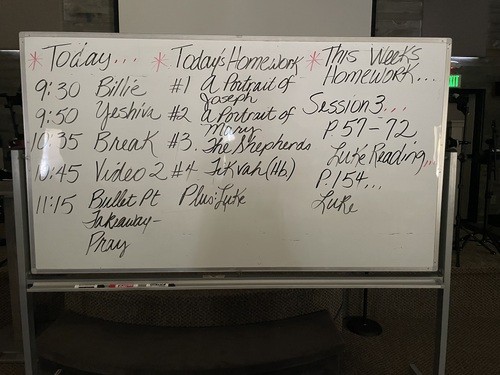 * Today...
9:30 Billie
9:50 Yeshiva
10:35 Break
10:45 Video 2
11:15 Bullet Pt
Takeaway-
Pray
* Today's Homework
#1 A Portrait of
Joseph
#2 A Portrait of
Mary
#3. The Shepherds
#4 Tikvah (Hb.)
Plus: Luke
* This Weeks
Homework...
Session 3...
P. 57-72
Luke Reading...
P. 154...
Luke